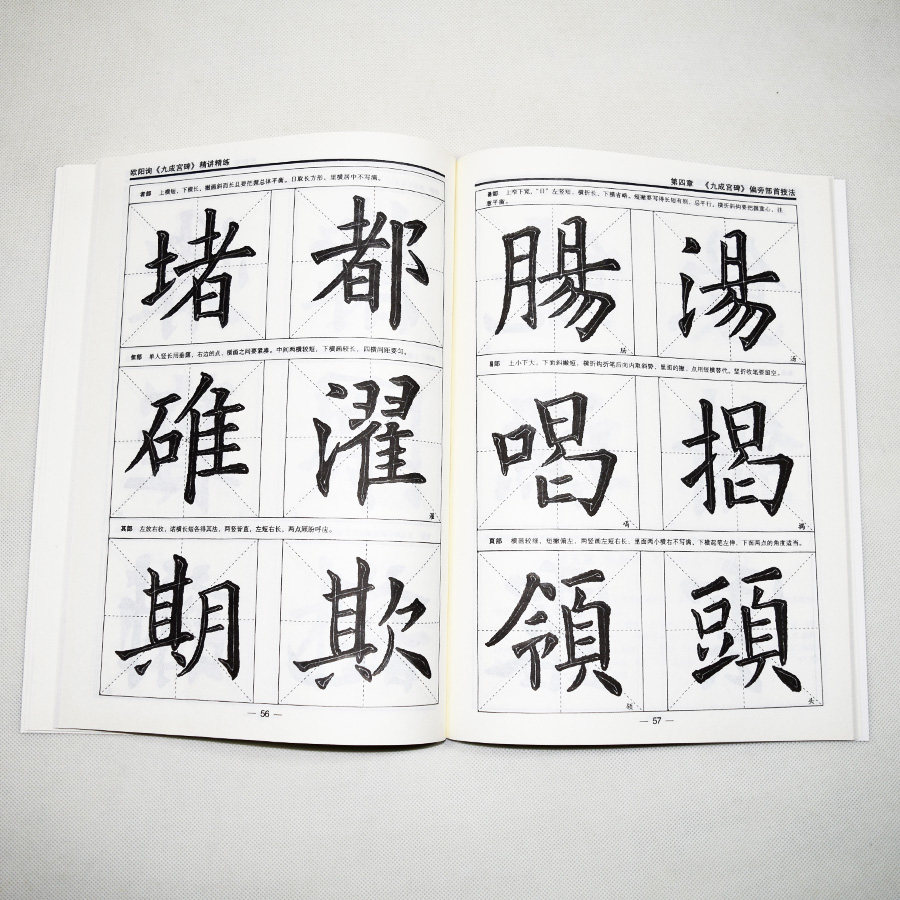 欧阳询《九成宫碑》精讲精练
者部 上横短，下横长，撇画斜而长且要把握总体平衡。日取长方形，里横居中不写满。
堵 都
隹部 单人竖长用垂露，右边的点、横画之间要紧凑。中间两横较短，下横画较长，四横间距要匀。
碓 濯
濯
其部 左放右收，诸横长短各得其法，两竖皆直，左短右长，两点顾盼呼应。
期 欺
— 56 —
第四章 《九成宫碑》偏旁部首技法
昜部 上窄下宽，“日”左竖短，横折长，下横省略，短撇要写得长短有别，总平行，横折斜钩要把握重心，注
意平衡。
腸 湯
肠 汤
曷部 上小下大，下面斜撇短，横折钩折笔后向内取斜势，里面的撇、点用短横替代，竖折收笔要留空。
喝 揭
喝 揭
頁部 横画较细，短撇偏左，两竖画左短右长，里面两小横右不写满，下横起笔左伸，下面两点的角度适当。
領 頭
领 头
— 57 —